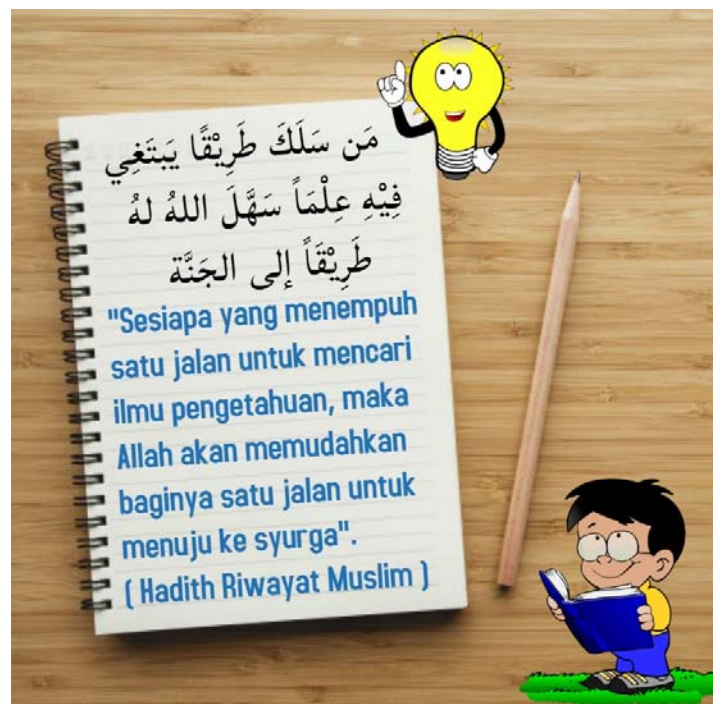 مَن سَلَكَ طَرِيْقًا يَبتَغِي
فِيْهِ عِلْمَاً سَهَّلَ اللهُ لهُ
طَرِيْقَاً إلى الجَنَّة
"Sesiapa yang menempuh
satu jalan untuk mencari
ilmu pengetahuan, maka
Allah akan memudahkan
baginya satu jalan untuk
menuju ke syurga".
( Hadith Riwayat Muslim )